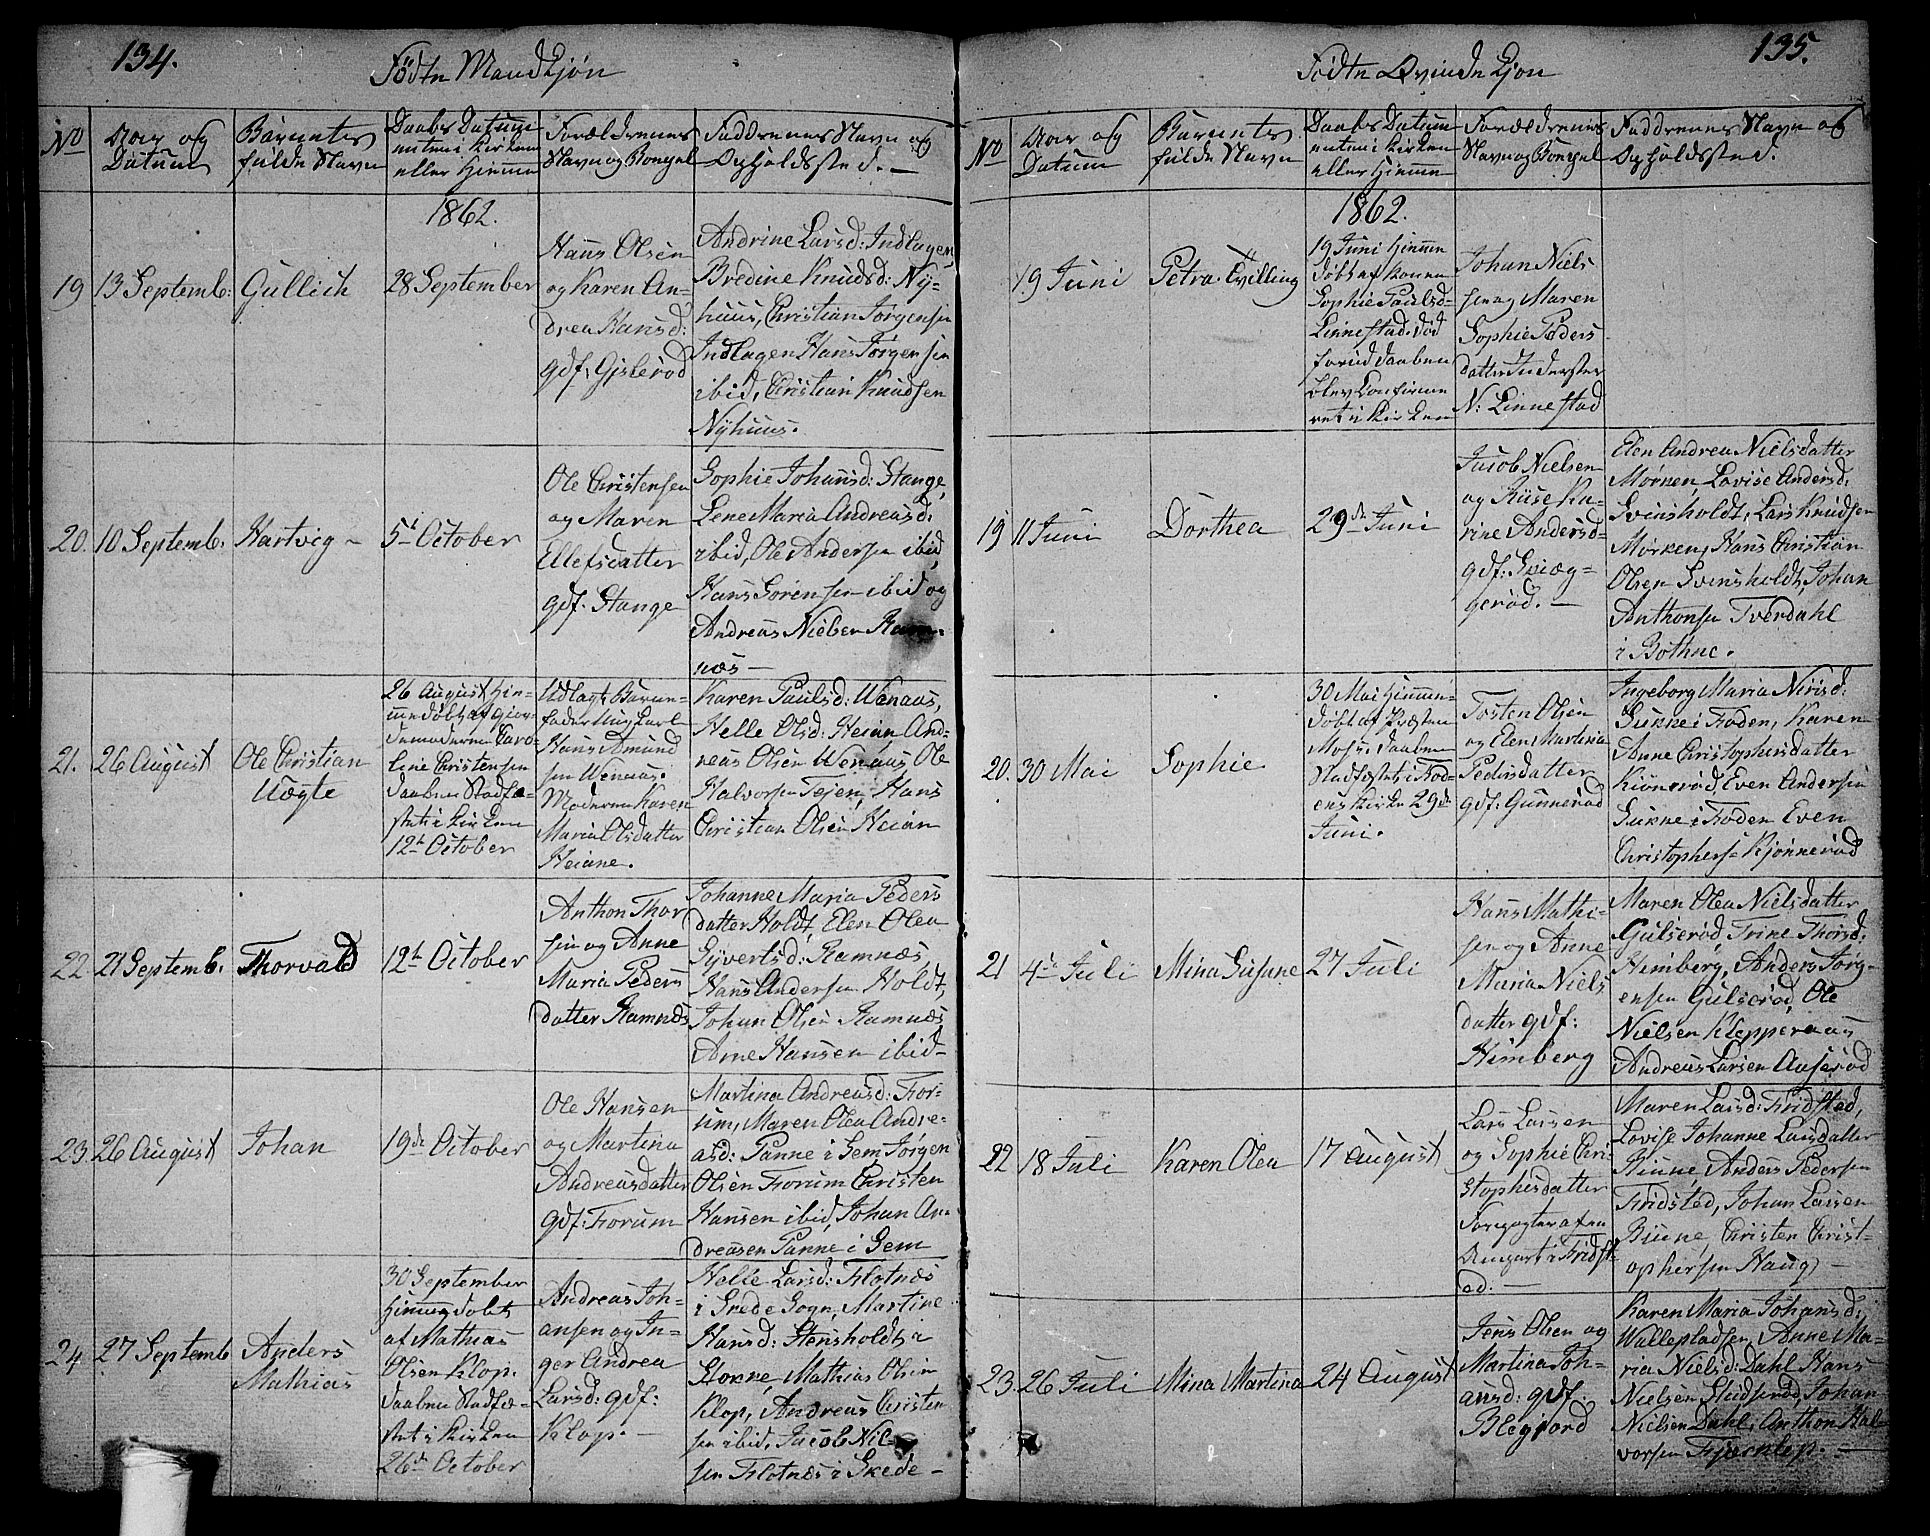 134.
Födte Mandkjön
No
Aar og
Datum
Barnets
fulde Navn
Daabs Datum
enten i Kirken
eller Hiemme
Forældrenes
Navn og Bopæl
Faddrenes Navn og
Opholdssted. -
1862.
19
13 Septemb:
Gullich
28 September
Hans Olsen
og Karen An-
drea Hansd:
gdf: Gisleröd
Andrine Larsd: Indlagen,
Bredine Knudsd: Ny-
huus, Christian Jörgensen
Indlagen Hans Jörgensen
ibid, Christian Knudsen
Nyhuus.
20.
10 Septemb:
Hartvig -
5t October
Ole Christensen
og Maren
Ellefsdatter
gdf. Stange
Sophie Johansd: Stange,
Lene Maria Andreasd:
ibid, Ole Andersen ibid,
Hans Sörensen ibid og
Andreas Nielsen Ram-
næs -
21.
26 August
Ole Christian
Uægte
26 August Hiem-
me döbt af Gior-
demoderen Caro-
line Christensen
Daaben Stadfæ-
stet i Kirken
12te October
Udlagt Barne-
fader Ungkarl
Hans Amund
sen Wenaas.
Moderen Karen
Maria Olsdatter
Heiane.
Karen Paulsd: Wenaas,
Helle Olsd: Heian And-
reas Olsen Wenaas Ole
Halvorsen Tejen, Hans
Christian Olsen Heian
22.
21 Septemb.
Thorvald
12te October
Anthon Thor
sen og Anne
Maria Peders
datter Ramnæs
Johanne Maria Peders
datter Holdt, Elen Olea
Syvertsd: Ramnæs,
Hans Andersen Holdt,
Johan Olsen Ramnæs
Arne Hansen ibid-
23.
26 August
Johan
19de October
Ole Hansen
og Martina
Andreasdatter
gdf: Forum
Martina Andreasd: For-
um, Maren Olea Andre-
asd: Panne i Sem Jörgen
Olsen Forum Christen
Hansen ibid, Johan An-
dreasen Panne i Sem
24.
27 Septemb
Anders
Mathias
30 September
Hiemmedöbt
af Mathias
Olsen Klop.
Daaben Stadfæ-
stet i Kirken
26de October
Andreas Joh-
ansen og In-
ger Andrea
Larsd: gdf:
Klop. -
Helle Larsd: Flotnæs
i Skede Sogn, Martine
Hansd: Stensholdt i
Stokne, Mathias Olsen
Klop, Andreas Christen
sen ibid, Jacob Niel-
sen Flotnæs i Skede -
135.
Födte Qvindekjön
No
Aar og
Datum
Barnets
fulde Navn
Daabs Datum
enten i Kirken
eller Hiemme
Forældrenes
Navn og Bopæl
Faddrenes Navn og
Opholdssted.
1862.
19 Juni
Petra Tvilling
19 Juni Hiemme
döbt af Konen
Sophie Paulsd-
Linnestad. Död
forud Daaben
blev Confirme
ret i Kirken
Johan Niels
sen og Maren
Sophie Peders
datter Inderster
N: Linnestad
19
11 Juni
Dorthea
29de Juni
Jacob Nielsen
og Rise Ka-
rine Andersd-
gdf: Sviæg-
geröd. -
Elen Andrea Nielsdatter
Mörken, Lovise Andersd:
Svinsholdt, Lars Knudsen
Mörken, Hans Christian
Olsen Svinsholdt, Johan
Anthonsen Tverdahl
i Bothne.
20.
30 Mai
Sophie
30 Mai Hiemme-
döbt af Præsten
Moss. Daaben
Stadfæstet i Fod-
ens Kirke 29de
Juni.
Tosten Olsen
og Elen Martina
Pedersdatter
gdf: Gunneröd
Ingeborg Maria Nirisd:
Sukke i Foden, Karen
Anne Christophersdatter
Kiönneröd, Even Andersen
Sukke i Foden Even
Christophersen Kjönneröd
21
4de Juli
Mina Susane
27 Juli
Hans Mathi-
sen og Anne
Maria Niels
datter gdf:
Himberg
Maren Olea Nielsdatter
Gulseröd, Trine Thorsd:
Himberg, Anders Jörg-
ensen Gulseröd, Ole
Nielsen Klepperaas
Andreas Larsen Auseröd
22
18 Juli
Karen Olea
17 August
Lars Larsen
og Sophie Chri-
stophersdatter
Forpagter af en
i Fridst-
ed. -
Maren Larsd: Fridsted,
Lovise Johanne Larsdatter
Biune, Anders Pedersen
Fridsted, Johan Larsen
Biune, Christen Christ-
ophersen Haug -
23.
26 Juli
Mina Martina
24 August
Jens Olsen og
Martina Joh-
ansd: gdf.
Blegjord
Karen Maria Johansd:
Wallepladsen, Anne Ma-
ria Nielsd: Dahl Hans
Nielsen, Johan
Nielsen Dahl, Anthon Hal-
vorsen Fjærklop. -